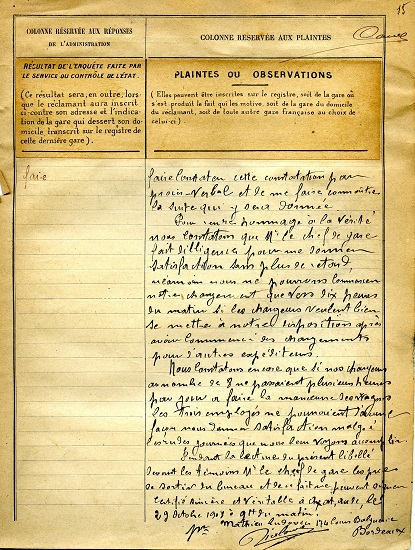 15
COLONNE RÉSERVÉE AUX RÉPONSES
DE L'ADMINISTRATION
RÉSULTAT DE L'ENQUÊTE FAITE PAR
LE SERVICE DU CONTRÔLE DE L'ÉTAT.
(Ce résultat sera, en outre, lors-
que le réclamant aura inscrit
ci-contre son adresse et l'indica-
tion de la gare qui dessert son do-
micile transcrit sur le registre de
cette dernière gare).
COLONNE RÉSERVÉE AUX PLAINTES
PLAINTES OU OBSERVATIONS
(Elles peuvent être inscrites sur le registre, soit de la gare où
s'est produit le fait qui les motive, soit de la gare du domicile
du réclamant, soit de toute autre gare française au choix de
celui-ci.)
faire
faire constater cette constatation par
procès-verbal et de me faire connaître
la suite qui y sera donnée
Pour rendre hommage à la vérité
nous constatons que Mr le chef de gare
fait diligence pour me donner
satisfaction sans plus de retard,
néanmoins nous ne pouvons commencer
notre chargement que vers dix heures
du matin si les chargeurs veulent bien
se mettre à notre disposition après
avoir commencé des chargements
pour d'autres expéditeurs.
Nous constatons encore que si nos chargeurs
au nombre de 8 ne passaient plusieurs heures
par jour a faire la manœuvre des wagons
les trois employés ne pourraient d'aucune
façon nous donner satisfaction malgré
les rudes journées que nous leur voyons accomplir.
Pendant la lecture du présent libellé
devant les témoins Mr le chef de gare
de sortir du bureau et de ce fait ne peuvent signer
Certifié sincère et véritable à Aude, le
29 Octobre 190 à 9h du matin.
Mathieu Ludovic 174 Cours Balguerie
Bordeaux